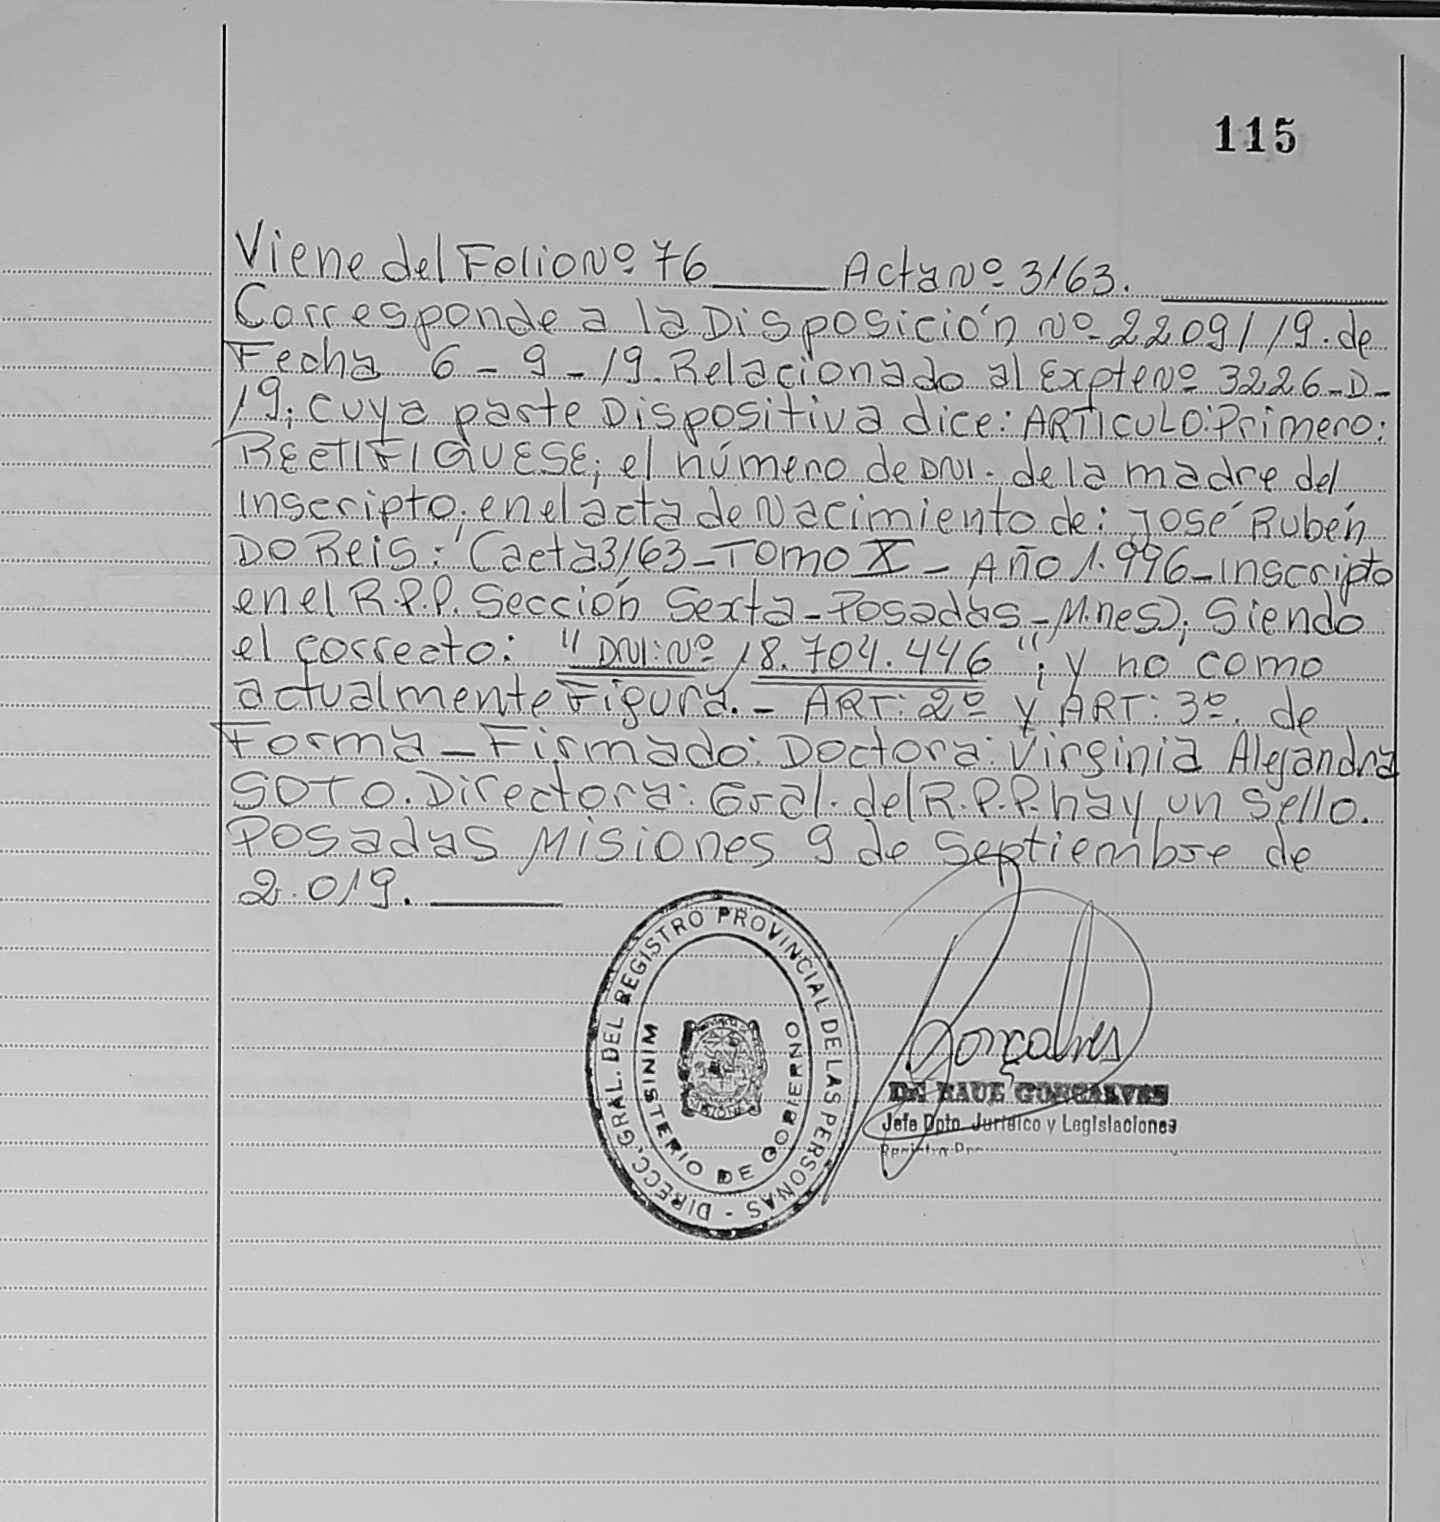 115
Viene del Folio Nº 76 ____ Acta Nº 3163. ____
Corresponde a la Disposición Nº 2209/19. de
Fecha 6-9-19. Relacionado al Expte Nº 3226-D-
19; cuya parte Dispositiva dice: ARTICULO: Primero:
RECTIFIQUESE; el número de DNI. de la madre del
inscripto; en el acta de Nacimiento de: José Rubén
DO Reis: (acta 3163-Tomo X - Año 1.996-inscripto
en el R.P.P. Sección Sexta-Posadas-Mnes); Siendo
el correcto: "DNI: Nº 18.704.446"; y no como
actualmente Figura.- ART: 2º y ART: 3º. de
Forma-Firmado: Doctora: Virginia Alejandra
SOTO. Directora: Gral. del R.P.P. hay un sello.
Posadas Misiones 9 de Septiembre de
2.019. ____
DIRECC. GRAL. DEL REGISTRO PROVINCIAL DE LAS PERSONAS -
MINISTERIO DE GOBIERNO
Gonçalves
Dr RAUL GONCALVES
Jefe Dpto. Jurídico y Legislaciones